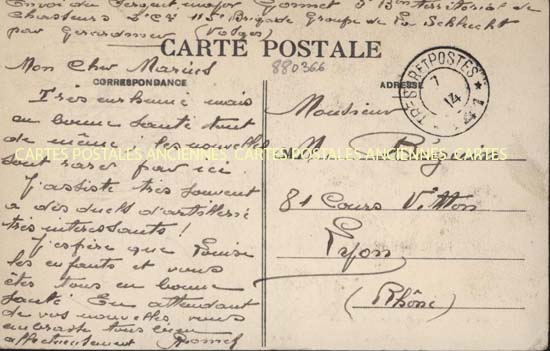 Envoi du Sergent major Gonnet 5e Bon territorial de
Chasseurs 2e Cie 115e Brigade Groupe de la Schlucht
par Gerardmer (Vosges)
CARTE POSTALE
880366
CORRESPONDANCE
ADRESSE
TRESOR ET POSTES
7
14
Mon Cher Marius
Très enrhumé mais
en bonne santé tout
de même, les nouvelles
sont rares par ici
J'assiste très souvent
a des duels d'artillerie
très interessants!
J'espère que Louise
les enfants et vous
êtes tous en bonne
santé En attendant
de vos nouvelles vous
embrasse tous bien
affectueusement
Monsieur
M.
81 Cours Vitton
Lyon
(Rhône)
CARTES POSTALES ANCIENNES CARTES POSTALES ANCIENNES CARTES POSTALES ANCIENNES